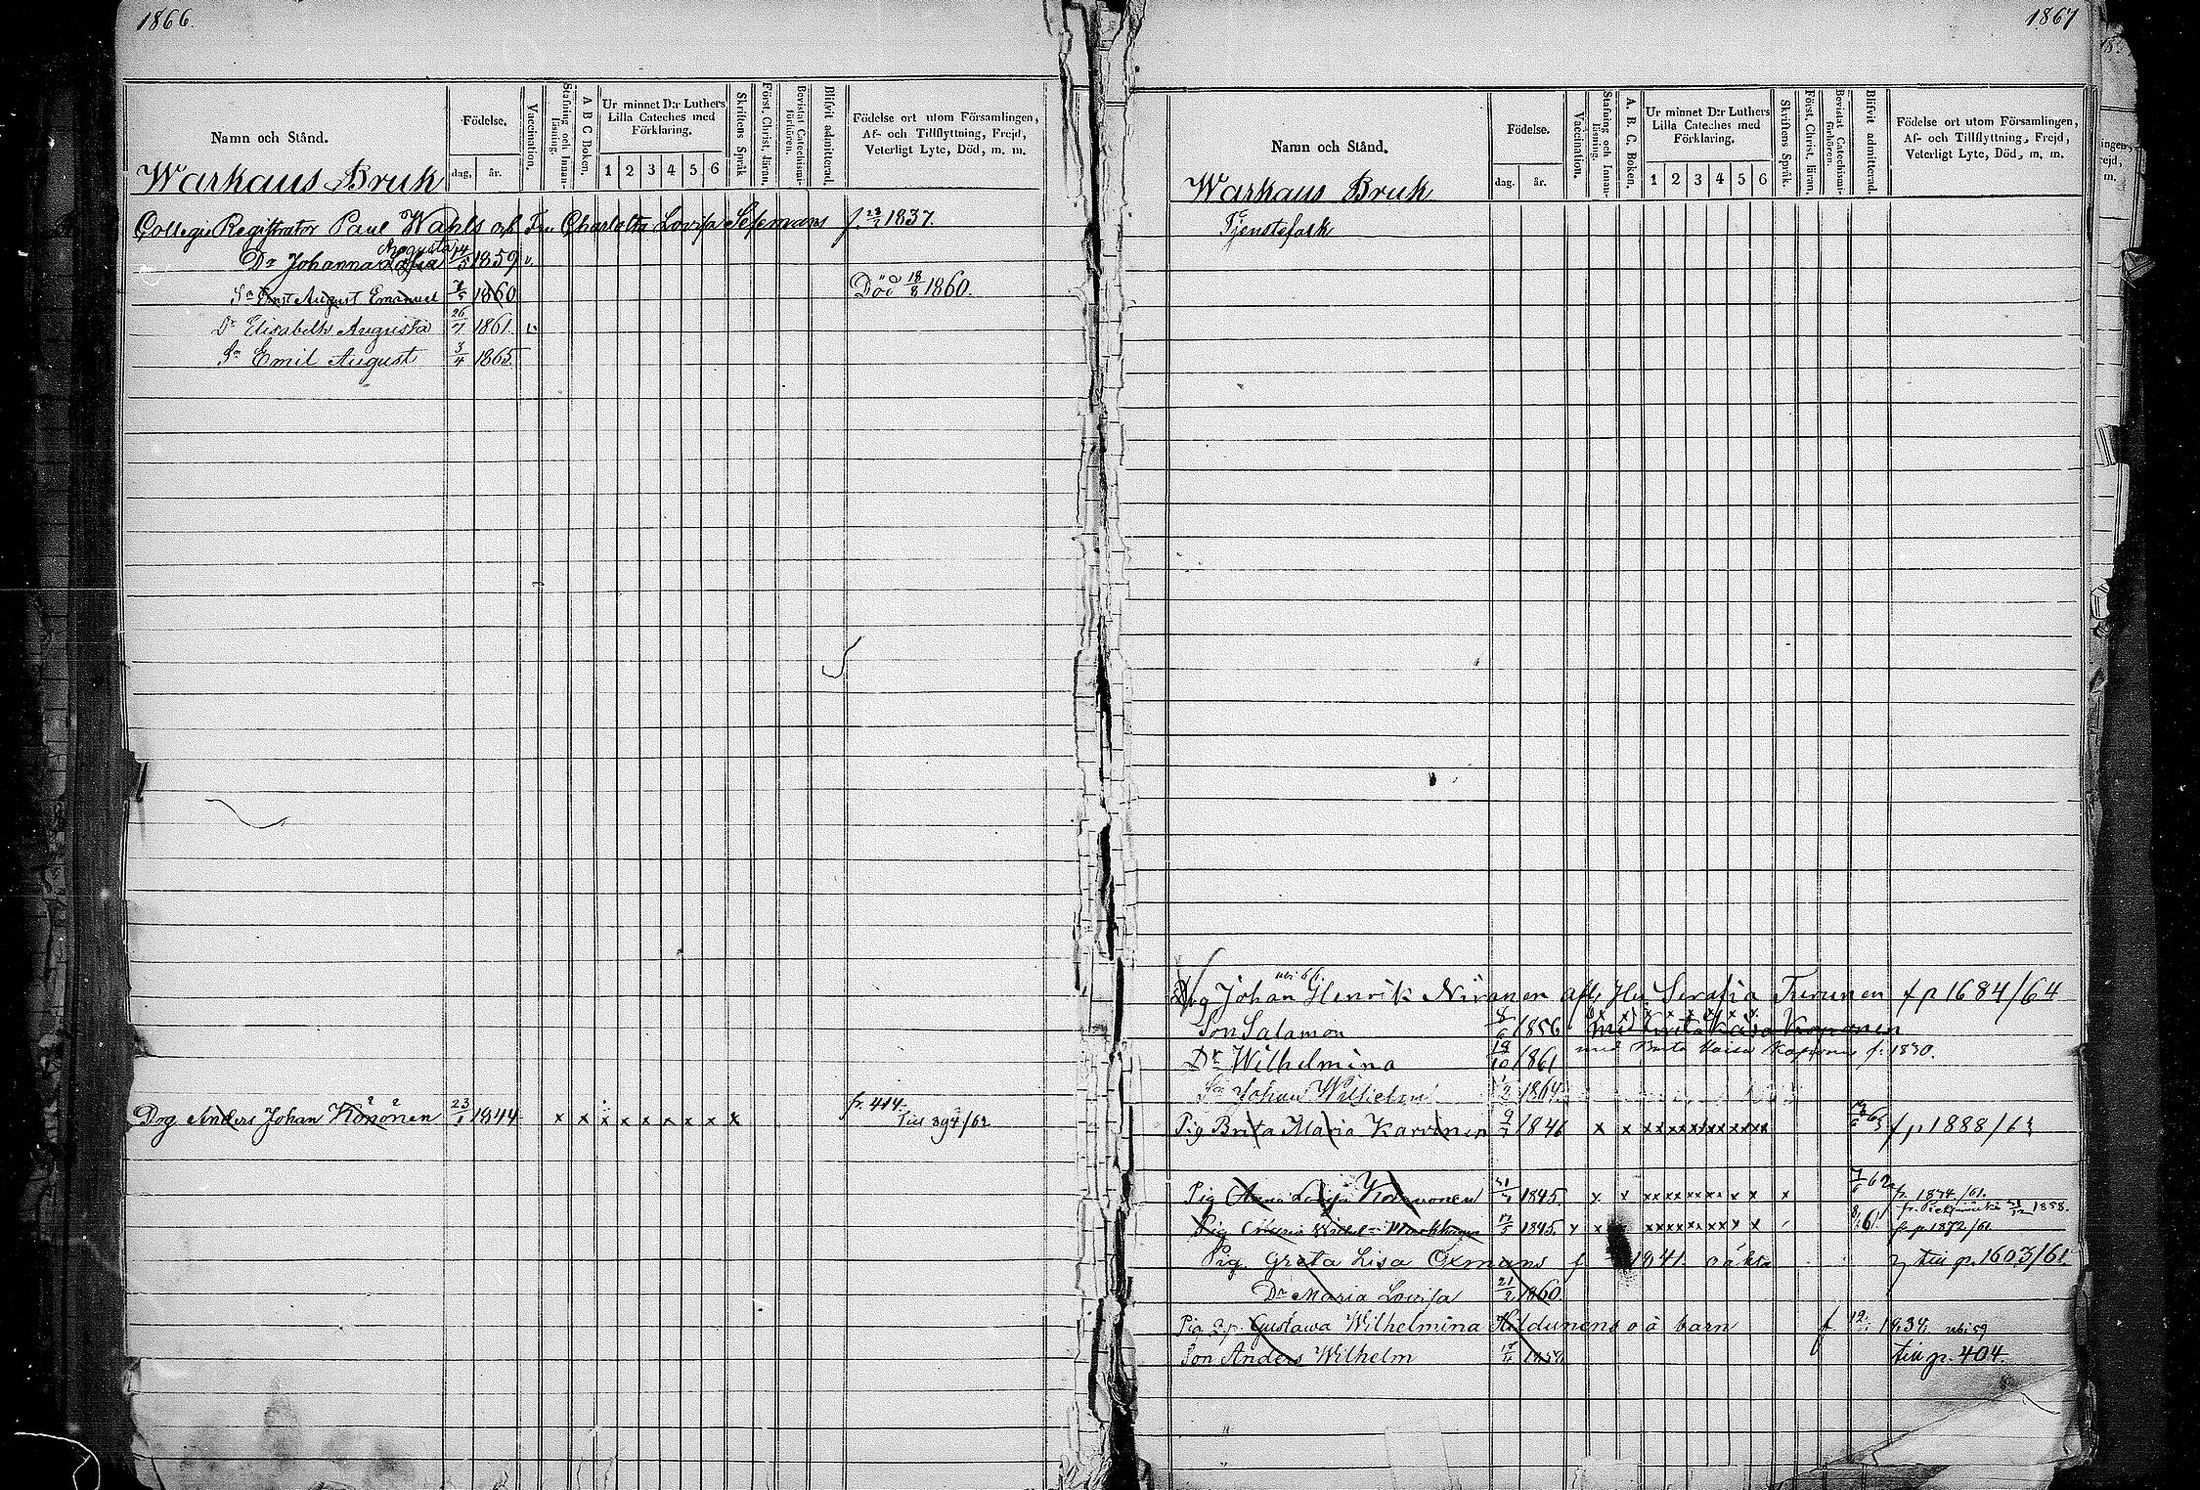 1866.
Namn och Stånd.
Födelse.
dag.
år.
Vaccination.
Stafning och Innan-läsning.
A B C Boken.
Ur minnet D:r Luthers
Lilla Cateches med
Förklaring.
1 2 3 4 5 6
Skriftens Språk
Först. Christ. läran.
Bevistat Catechismi-förhören.
Blifvit admitterad.
Födelse ort utom Församlingen,
Af- och Tillflyttning, Frejd,
Veterligt Lyte, Död, m. m.
Warkaus Bruk
Collegie Registrator Paul Wahls och Fru Charlotta Lovisa f. 1837.
Dr Johanna Augusta 14/5 1859 v.
Sn Ernst August Emanuel 1860 Död 18/8 1860.
Dr Elisabeth Augusta 26/7 1861. v.
Sn Emil August 3/4 1865.
Dog Anders Johan Könönen 23/1 1844 x x x x x x x x x fr. 414.
Till 894/62
1867
Namn och Stånd.
Födelse.
dag.
år.
Vaccination.
Stafning och Innan-läsning.
A. B. C. Boken.
Ur minnet D:r Luthers
Lilla Cateches med
Förklaring.
1 2 3 4 5 6
Skriftens Språk.
Först. Christ. läran.
Bevistat Catechismi-förhören.
Blifvit admitterad.
Födelse ort utom Församlingen,
Af- och Tillflyttning, Frejd,
Veterligt Lyte, Död, m. m.
Warkaus Bruk
Tjenstefolk
Dog Johan Henrik Niranen Serafia Turunen f p 1684/64
Son Salamon 1856
Dr Wilhelmina 19/10 1861 med Brita Kaisa f. 1830.
Sn Johan Wilhelm 1864
Pig Brita Maria Karvinen 1846 x x x x x x x x x x x x f p 1888/63
Pig Anna 1845. x x x x x x x x x x x x 7/6 62 fr. 1874/61.
Pig Maria 1845. x x x x x x x x x f p 1872/61
Pig. Greta Lisa Oxmans f 1841. o äkta till p. 1603/61.
Dr Maria Lovisa 21/2 1860
Pig Gustava Wilhelmina Hildunens o ä barn f.
Son Anders Wilhelm till p. 404.